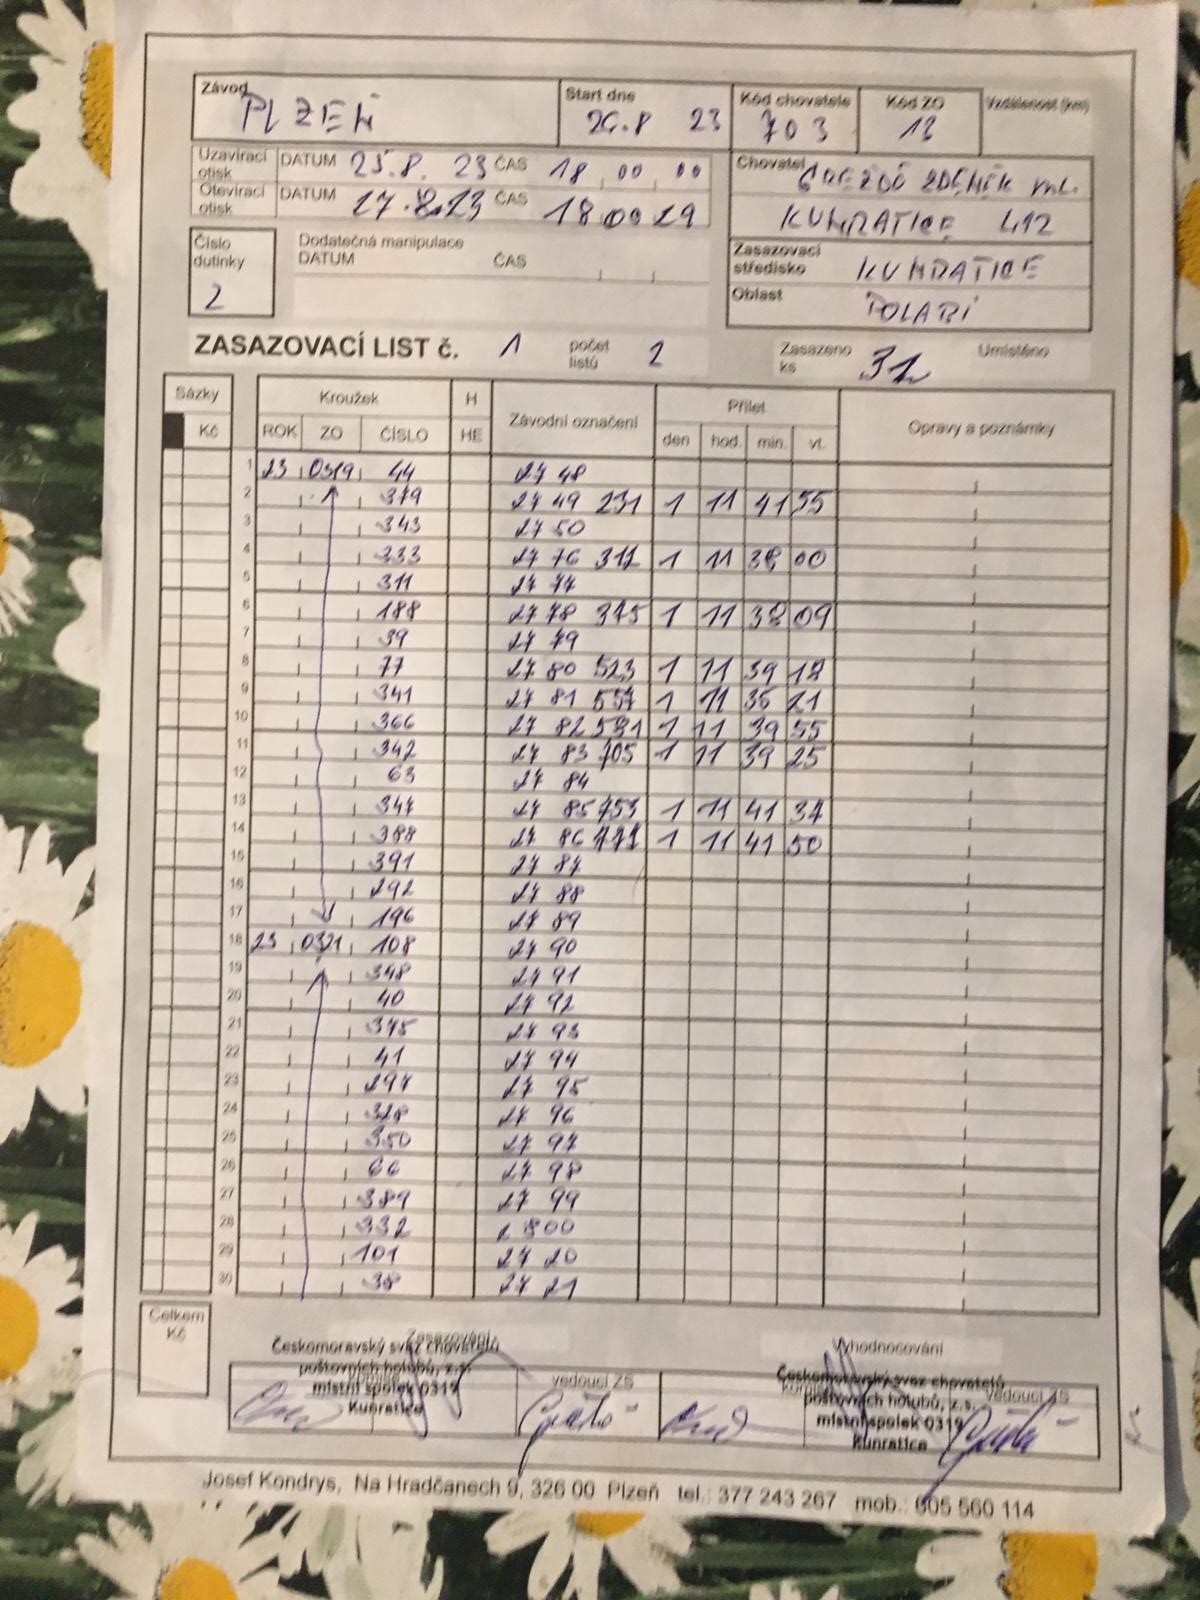 Závod PLZEŇ Start dne 26.8 23 Kód chovatele 703 Kód ZO 13 Vzdálenost (km)
Uzavírací otisk DATUM 25.8. 23 ČAS 18 00 00
Otevírací otisk DATUM 27.8.23 ČAS 18 00 29
Chovatel ZDENĚK ML.
KUNRATICE 412
Zasazovací středisko KUNRATICE
Oblast POLABÍ
Číslo dutinky 2
Dodatečná manipulace
DATUM ČAS
ZASAZOVACÍ LIST č. 1 počet listů 2 Zasazeno ks 31 Umístěno
Sázky Kroužek H Závodní označení Přílet Opravy a poznámky
Kč ROK ZO ČÍSLO HE den hod. min. vt.
1 23 0319 44 27 48
2 379 27 49 231 1 11 41 55
3 343 27 50
4 333 27 76 312 1 11 38 00
5 311 27 77
6 188 27 78 345 1 11 38 09
7 39 27 79
8 77 27 80 523 1 11 39 12
9 341 27 81 557 1 11 35 21
10 366 27 82 591 1 11 39 55
11 342 27 83 705 1 11 39 25
12 63 27 84
13 347 27 85 753 1 11 41 37
14 388 27 86 771 1 11 41 50
15 391 27 87
16 292 27 88
17 196 27 89
18 23 0321 108 27 90
19 348 27 91
20 40 27 92
21 345 27 93
22 41 27 94
23 297 27 95
24 328 27 96
25 350 27 97
26 66 27 98
27 389 27 99
28 332 2800
29 101 27 20
30 38 27 21
Celkem Kč
Zasazování Vyhodnocování
Českomoravský svaz chovatelů
poštovních holubů, z.s.
místní spolek 0319
Kunratice
vedoucí ZS
Českomoravský svaz chovatelů
poštovních holubů, z.s.
místní spolek 0319
Kunratice
vedoucí ZS
Josef Kondrys, Na Hradčanech 9, 326 00 Plzeň tel.: 377 243 267 mob.: 605 560 114